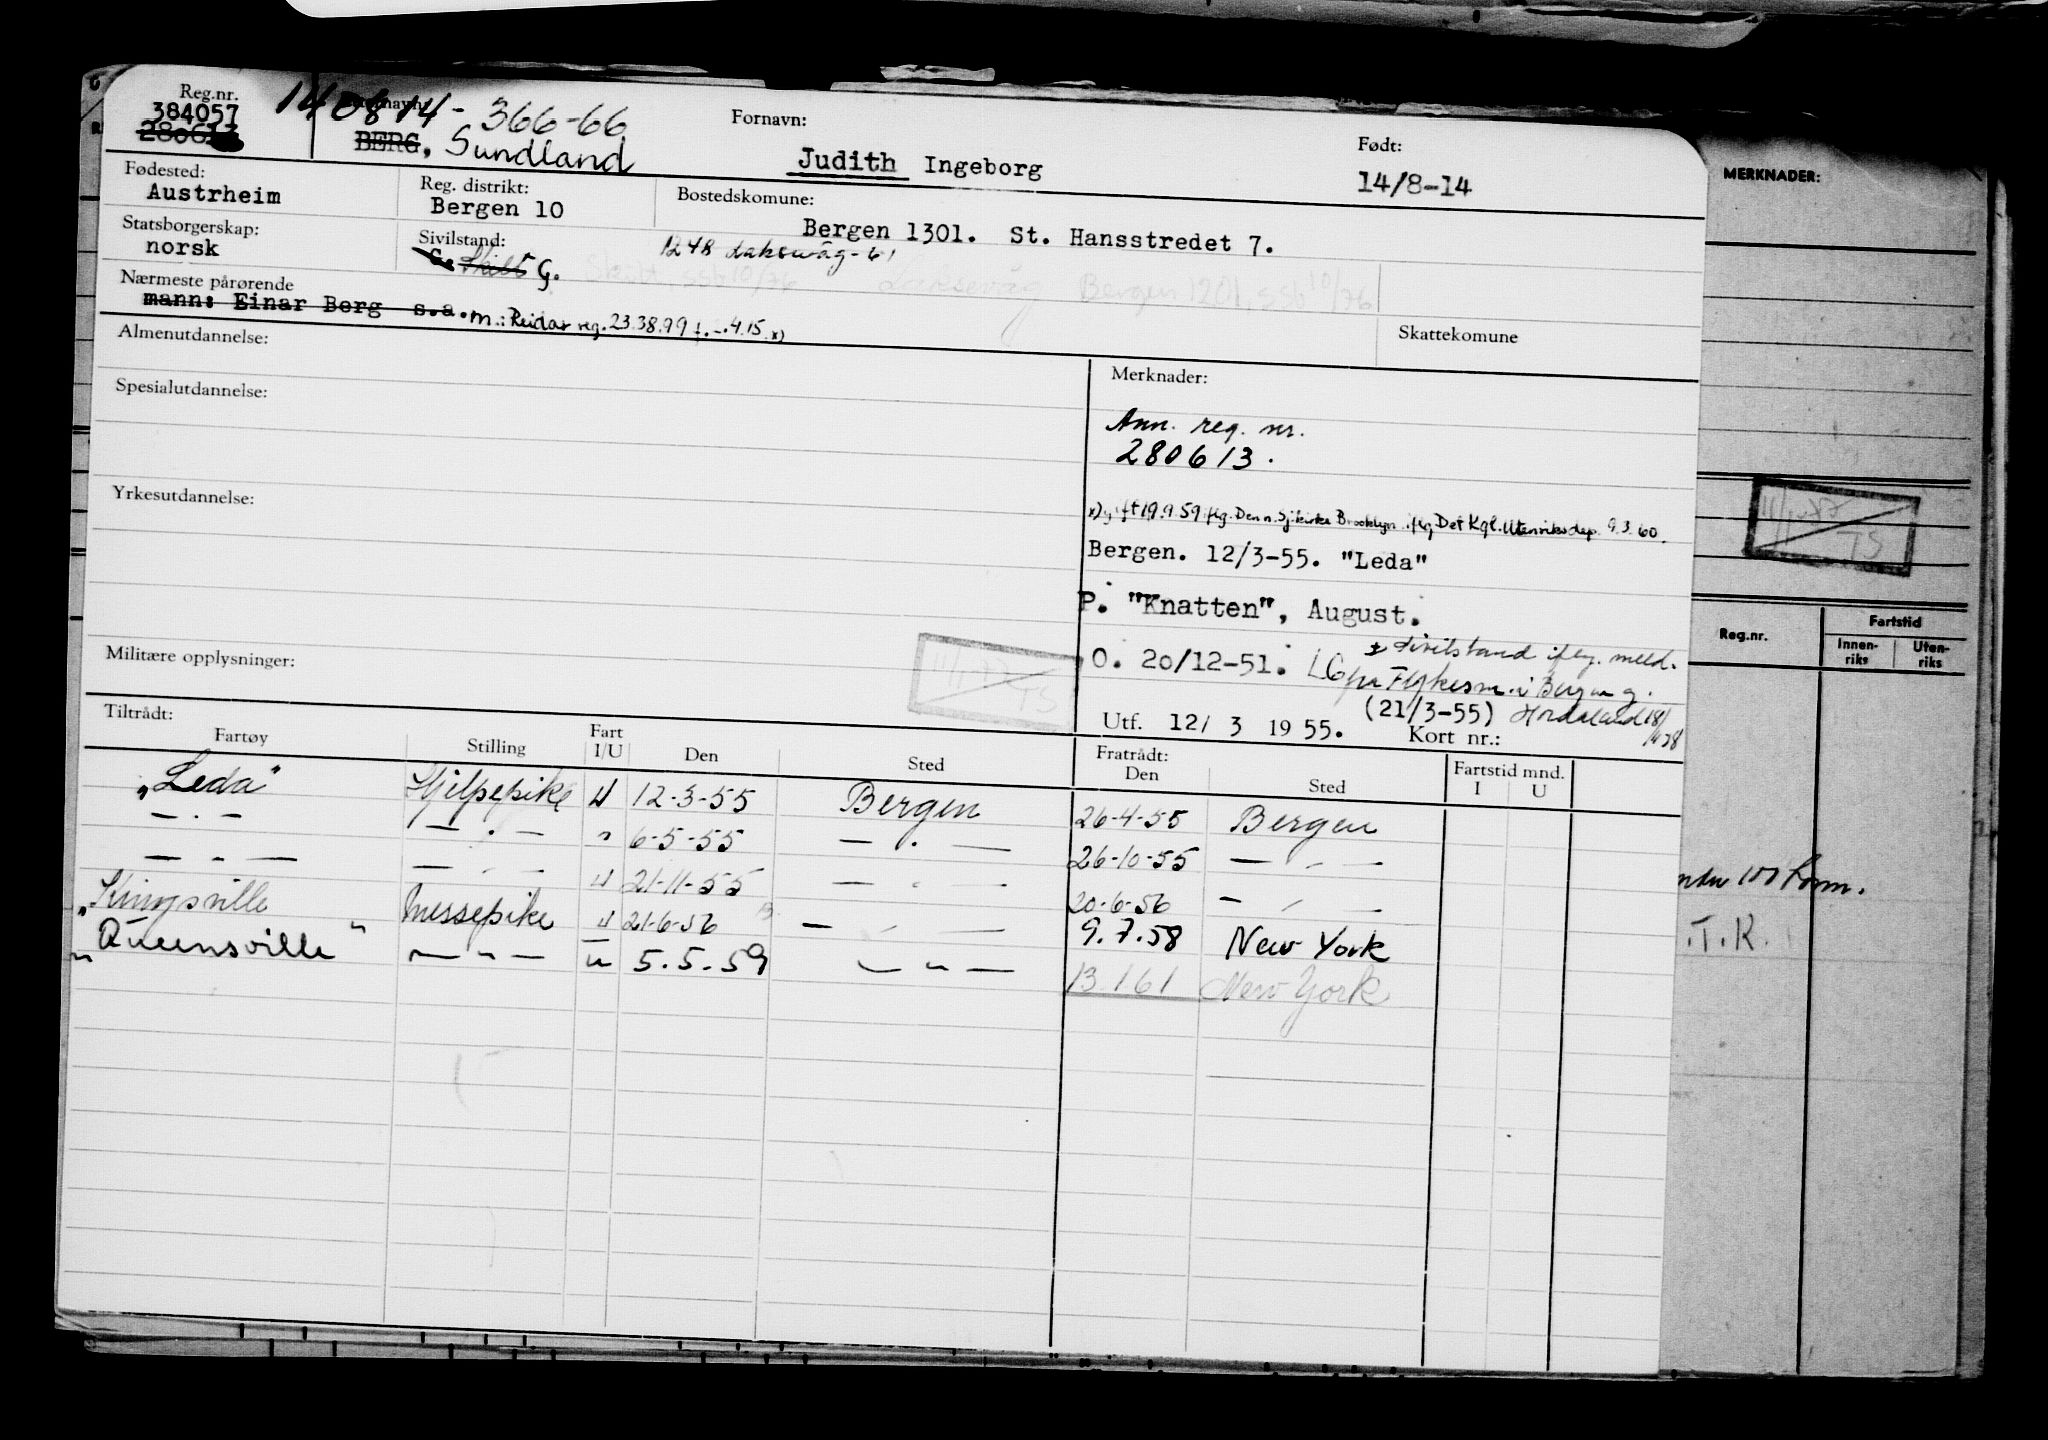 Reg.nr.
384057
280613
140814-366-66
BERG, Sundland
Fornavn:
Judith Ingeborg
Født:
14/8-14
Fødested:
Austrheim
Reg. distrikt:
Bergen 10
Bostedskomune:
Bergen 1301. St. Hansstredet 7.
Statsborgerskap:
norsk
Sivilstand:
G. Skilt G.
1248 Laksevåg-61
Skilt, ssb 10/76 Laksevåg Bergen 1201, ssb 10/76
Nærmeste pårørende
mann: Einar Berg s.a. m.: Reidar reg. 23.38.99 f. -.4.15 x)
Skattekomune
Almenutdannelse:
Spesialutdannelse:
Yrkesutdannelse:
Militære opplysninger:
11/1-77
TS
Merknader:
Ann. reg. nr.
280613.
x) gift 19.9.59 iflg. Den n. Sj.kirke Brooklyn iflg Det Kgl. Utenriksdep. 9.3.60.
Bergen. 12/3-55. "Leda"
P. "Knatten", August.
± sivilstand iflg. meld.
O. 20/12-51. LG fra Fylkesm. i Bergen og
(21/3-55) Hordaland 18/
Utf. 12/ 3 19 55. Kort nr.:
Tiltrådt:
Fratrådt:
Fartøy Stilling Fart I/U Den Sted Den Sted Fartstid mnd. I U
"Leda" Hjelpepike U 12-3-55 Bergen 26-4-55 Bergen
— . — — . — " 6-5-55 — . — 26-10-55 — " —
— " — — " — U 21-11-55 — " — 20-6-56 — " —
"Kingsville Messepike U 21-6-56 — " — 9.7.58 New York
"Queensville" — " — U 5.5.59 — " — 13.1.61 New York
MERKNADER:
11/1-77
TS
Reg.nr.
Fartstid
Innen-riks
Uten-riks
.T.K.